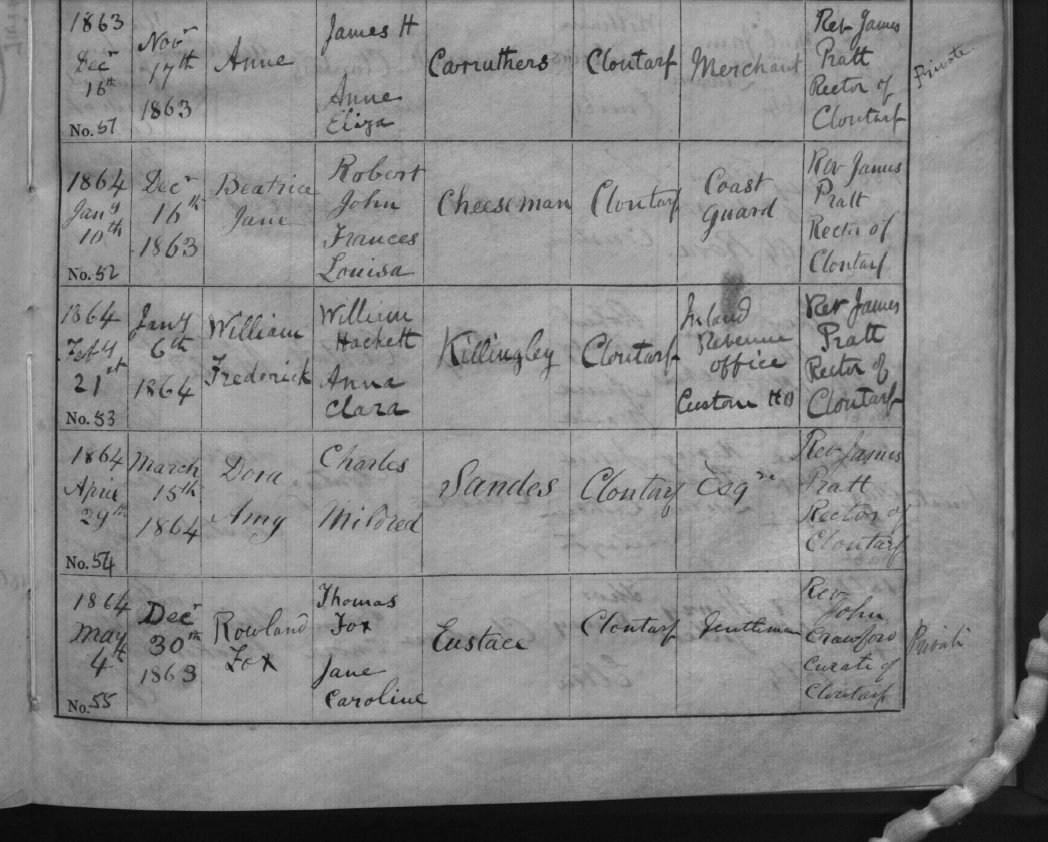 1863
Decr
16th
No. 51
Novr
17th
1863
Anne
James H
Anne
Eliza
Carruthers
Clontarf
Merchant
Rev James
Pratt
Rector of
Clontarf
Private
1864
Jany
10th
No. 52
Decr
16th
1863
Beatrice
Jane
Robert
John
Frances
Louisa
Cheeseman
Clontarf
Coast
Guard
Rev James
Pratt
Rector of
Clontarf
1864
Feby
21st
No. 53
Jany
6th
1864
William
Frederick
William
Hackett
Anna
Clara
Killingley
Clontarf
Inland
Revenue
office
Custom HO
Rev James
Pratt
Rector of
Clontarf
1864
April
29th
No. 54
March
15th
1864
Dora
Amy
Charles
Mildred
Sandes
Clontarf
Esqre
Rev James
Pratt
Rector of
Clontarf
1864
May
4th
No. 55
Decr
30th
1863
Rowland
Fox
Thomas
Fox
Jane
Caroline
Eustace
Clontarf
Gentleman
Rev
John
Crawford
Curate of
Clontarf
Private